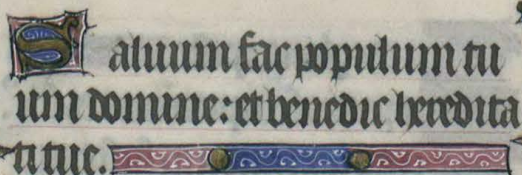 Saluum fac populum tu
um domine: et benedic heredita
ti tue.